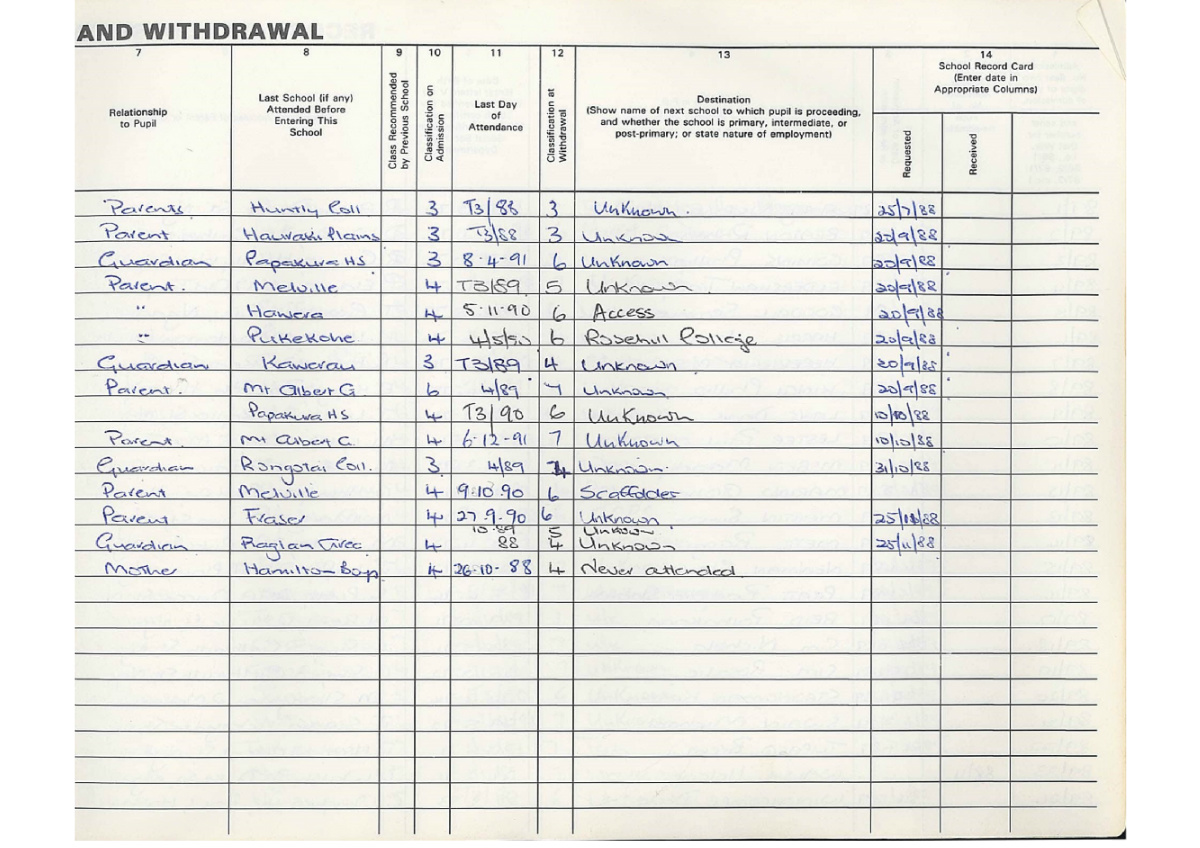 AND WITHDRAWAL
7 8 9 10 11 12 13 14
Relationship to Pupil
Last School (if any) Attended Before Entering This School
Class Recommended by Previous School
Classification on Admission
Last Day of Attendance
Classification at Withdrawal
Destination (Show name of next school to which pupil is proceeding, and whether the school is primary, intermediate, or post-primary; or state nature of employment)
School Record Card (Enter date in Appropriate Columns)
Requested
Received
Parents Huntly Coll 3 T3/88 3 UnKnown. 25/7/88
Parent Hauraki Plains 3 T3/88 3 Unknown 20/9/88
Guardian Papakura HS 3 8·4·91 6 Unknown 20/9/88
Parent. Melville 4 T3/89. 5 Unknown. 20/9/88
" Hawera 4 5·11·90 6 Access 20/9/88
" Pukekohe 4 4/5/90 6 Rosehill College 20/9/88
Guardian Kawerau 3 T3/89 4 Unknown 20/9/88
Parent. Mt Albert G 6 4/89 7 Unknown 20/9/88
Papakura HS 4 T3/90 6 UnKnown 10/10/88
Parent. Mt Albert G. 4 6·12·91 7 UnKnown 10/10/88
Guardian Rongotai Coll. 3 4/89 4 Unknown. 31/10/88
Parent Melville 4 9·10·90 6 Scaffolder
Parent Fraser 4 27·9·90 6 Unknown 25/11/88
10·89 5 Unknown
Guardian Raglan 4 88 4 Unknown 25/11/88
Mother Hamilton Boys 4 26·10·88 4 Never attended.